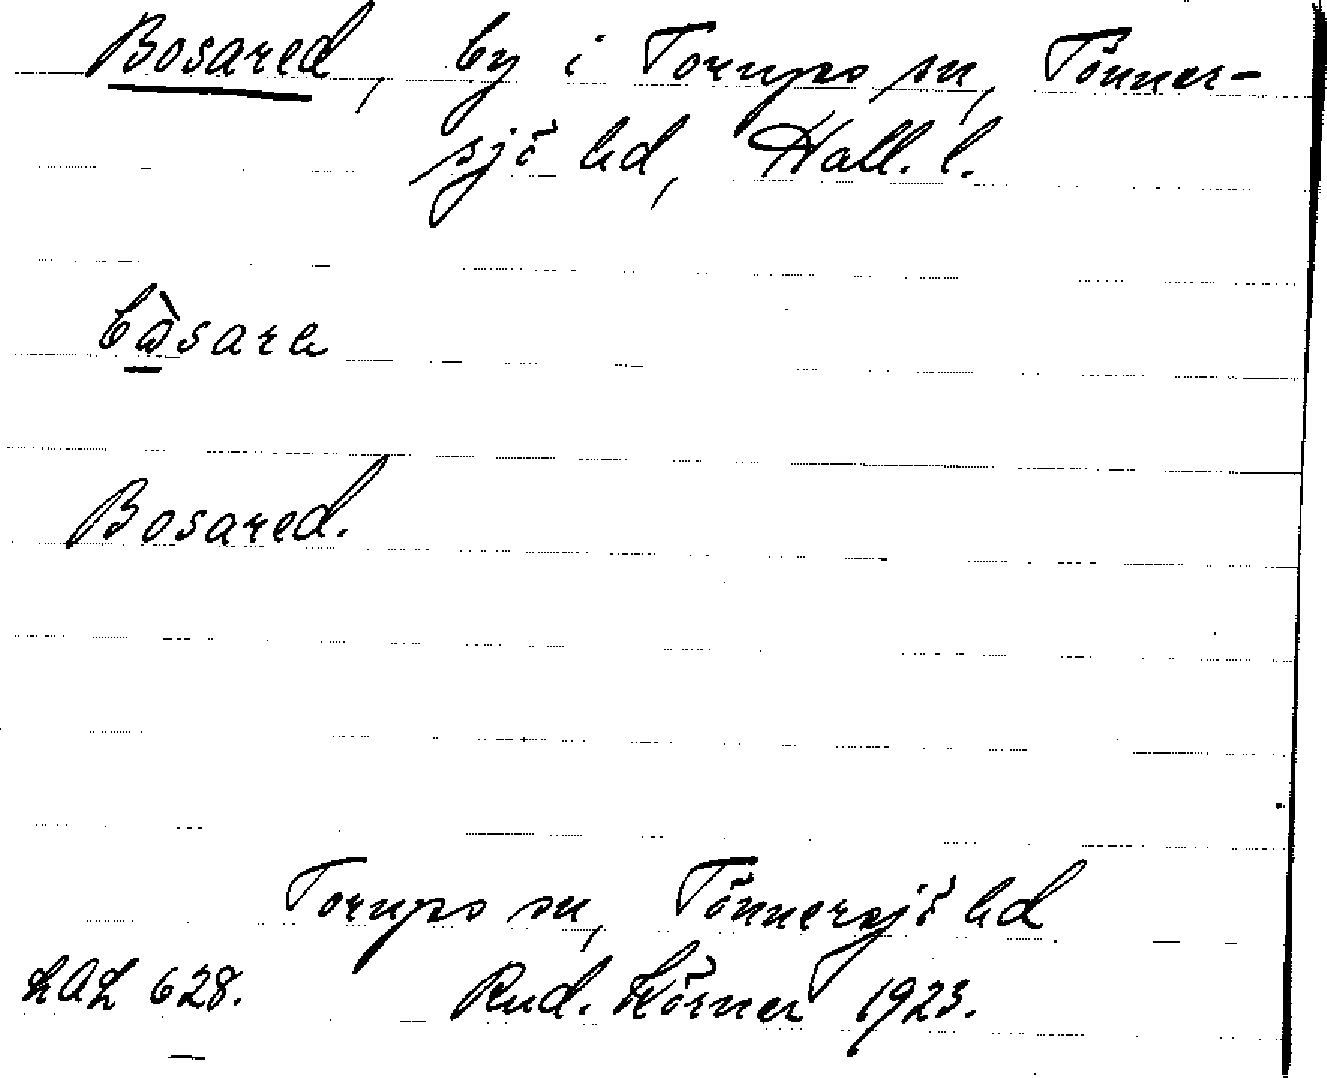 Bosared, by i Torups sn, Tönner-
sjö hd, Hall. l.
Bosared.
Torups sn, Tönnersjö hd
LAL 628. Rud. Körner 1923.